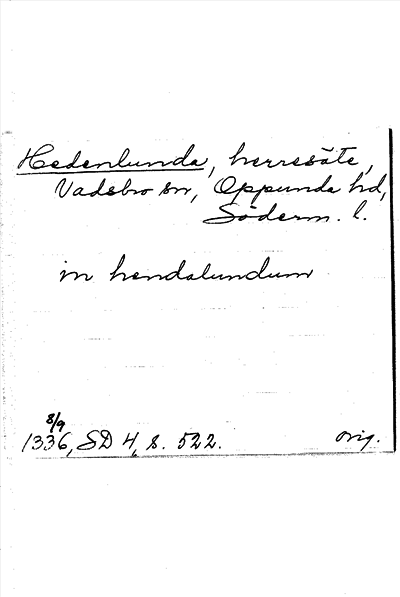 Hedenlunda, herresäte,
Vadsbro sn, Oppunda hd,
Söderm. l.
in hendalundum
8/9
1336, SD 4, s. 522. orig.